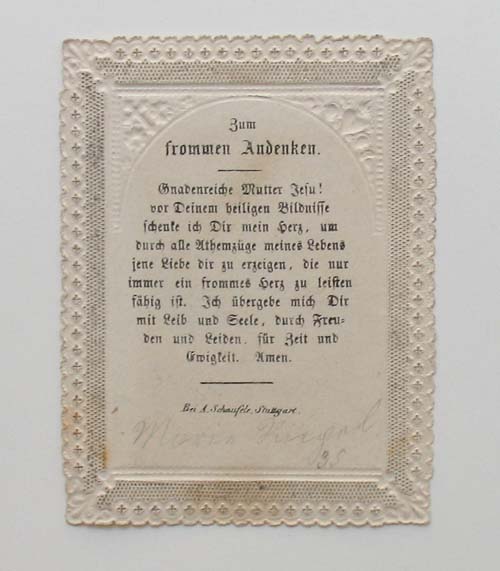 Zum
frommen Andenken.
Gnadenreiche Mutter Jesu!
vor Deinem heiligen Bildnisse
schenke ich Dir mein Herz, um
durch alle Athemzüge meines Lebens
jene Liebe dir zu erzeigen, die nur
immer ein frommes Herz zu leisten
fähig ist. Ich übergebe mich Dir
mit Leib und Seele, durch Freu-
den und Leiden, für Zeit und
Ewigkeit. Amen.
Bei A. Schaufele, Stuttgart.
Maria